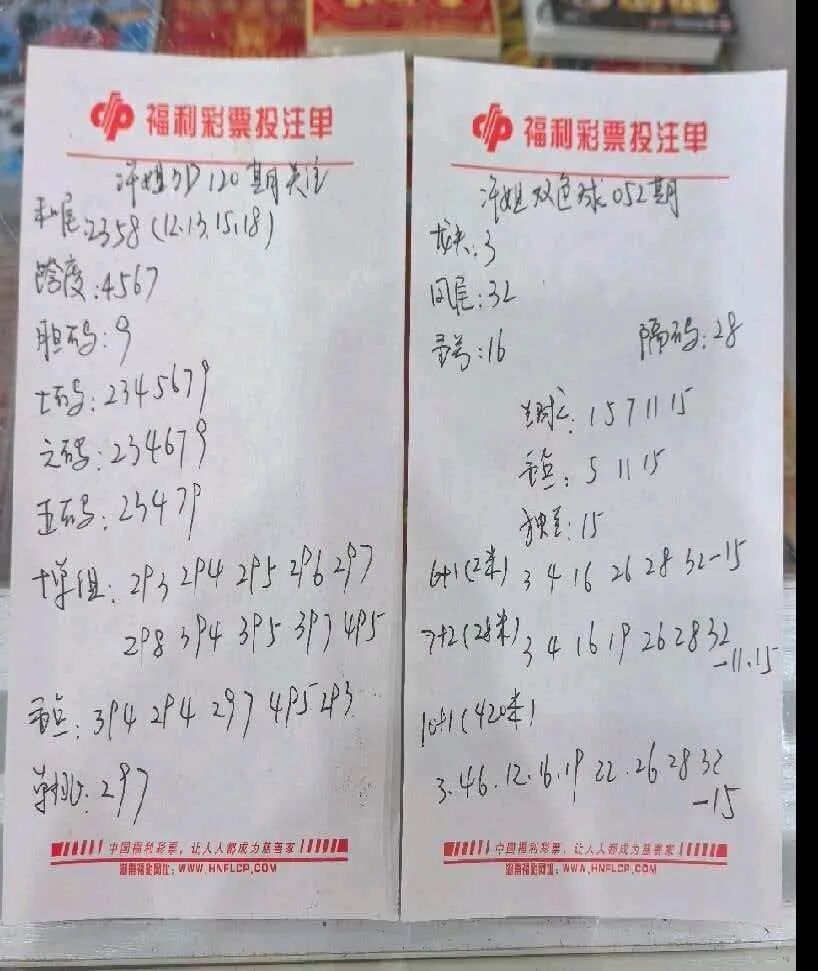 福利彩票投注单
许姐3D120期关注
和尾:2358(12.13.15.18)
跨度:4567
胆码:9
七码:2345679
六码:234679
五码:23479
十单组:293 294 295 296 297
298 394 395 397 495
重点:394 294 297 495 293
单挑:297
中国福利彩票,让人人都成为慈善家
湖南福彩网址:WWW.HNFLCP.COM
福利彩票投注单
许姐双色球052期
龙头:3
凤尾:32
重号:16 隔码:28
兰球:1 5 7 11 15
重点:5 11 15
独兰:15
6+1(2米) 3 4 16 26 28 32-15
7+2(28米) 3 4 16 19 26 28 32
-11.15
10+1(420米)
3.4 6.12.16.19 22.26 28 32
-15
中国福利彩票,让人人都成为慈善家
湖南福彩网址:WWW.HNFLCP.COM